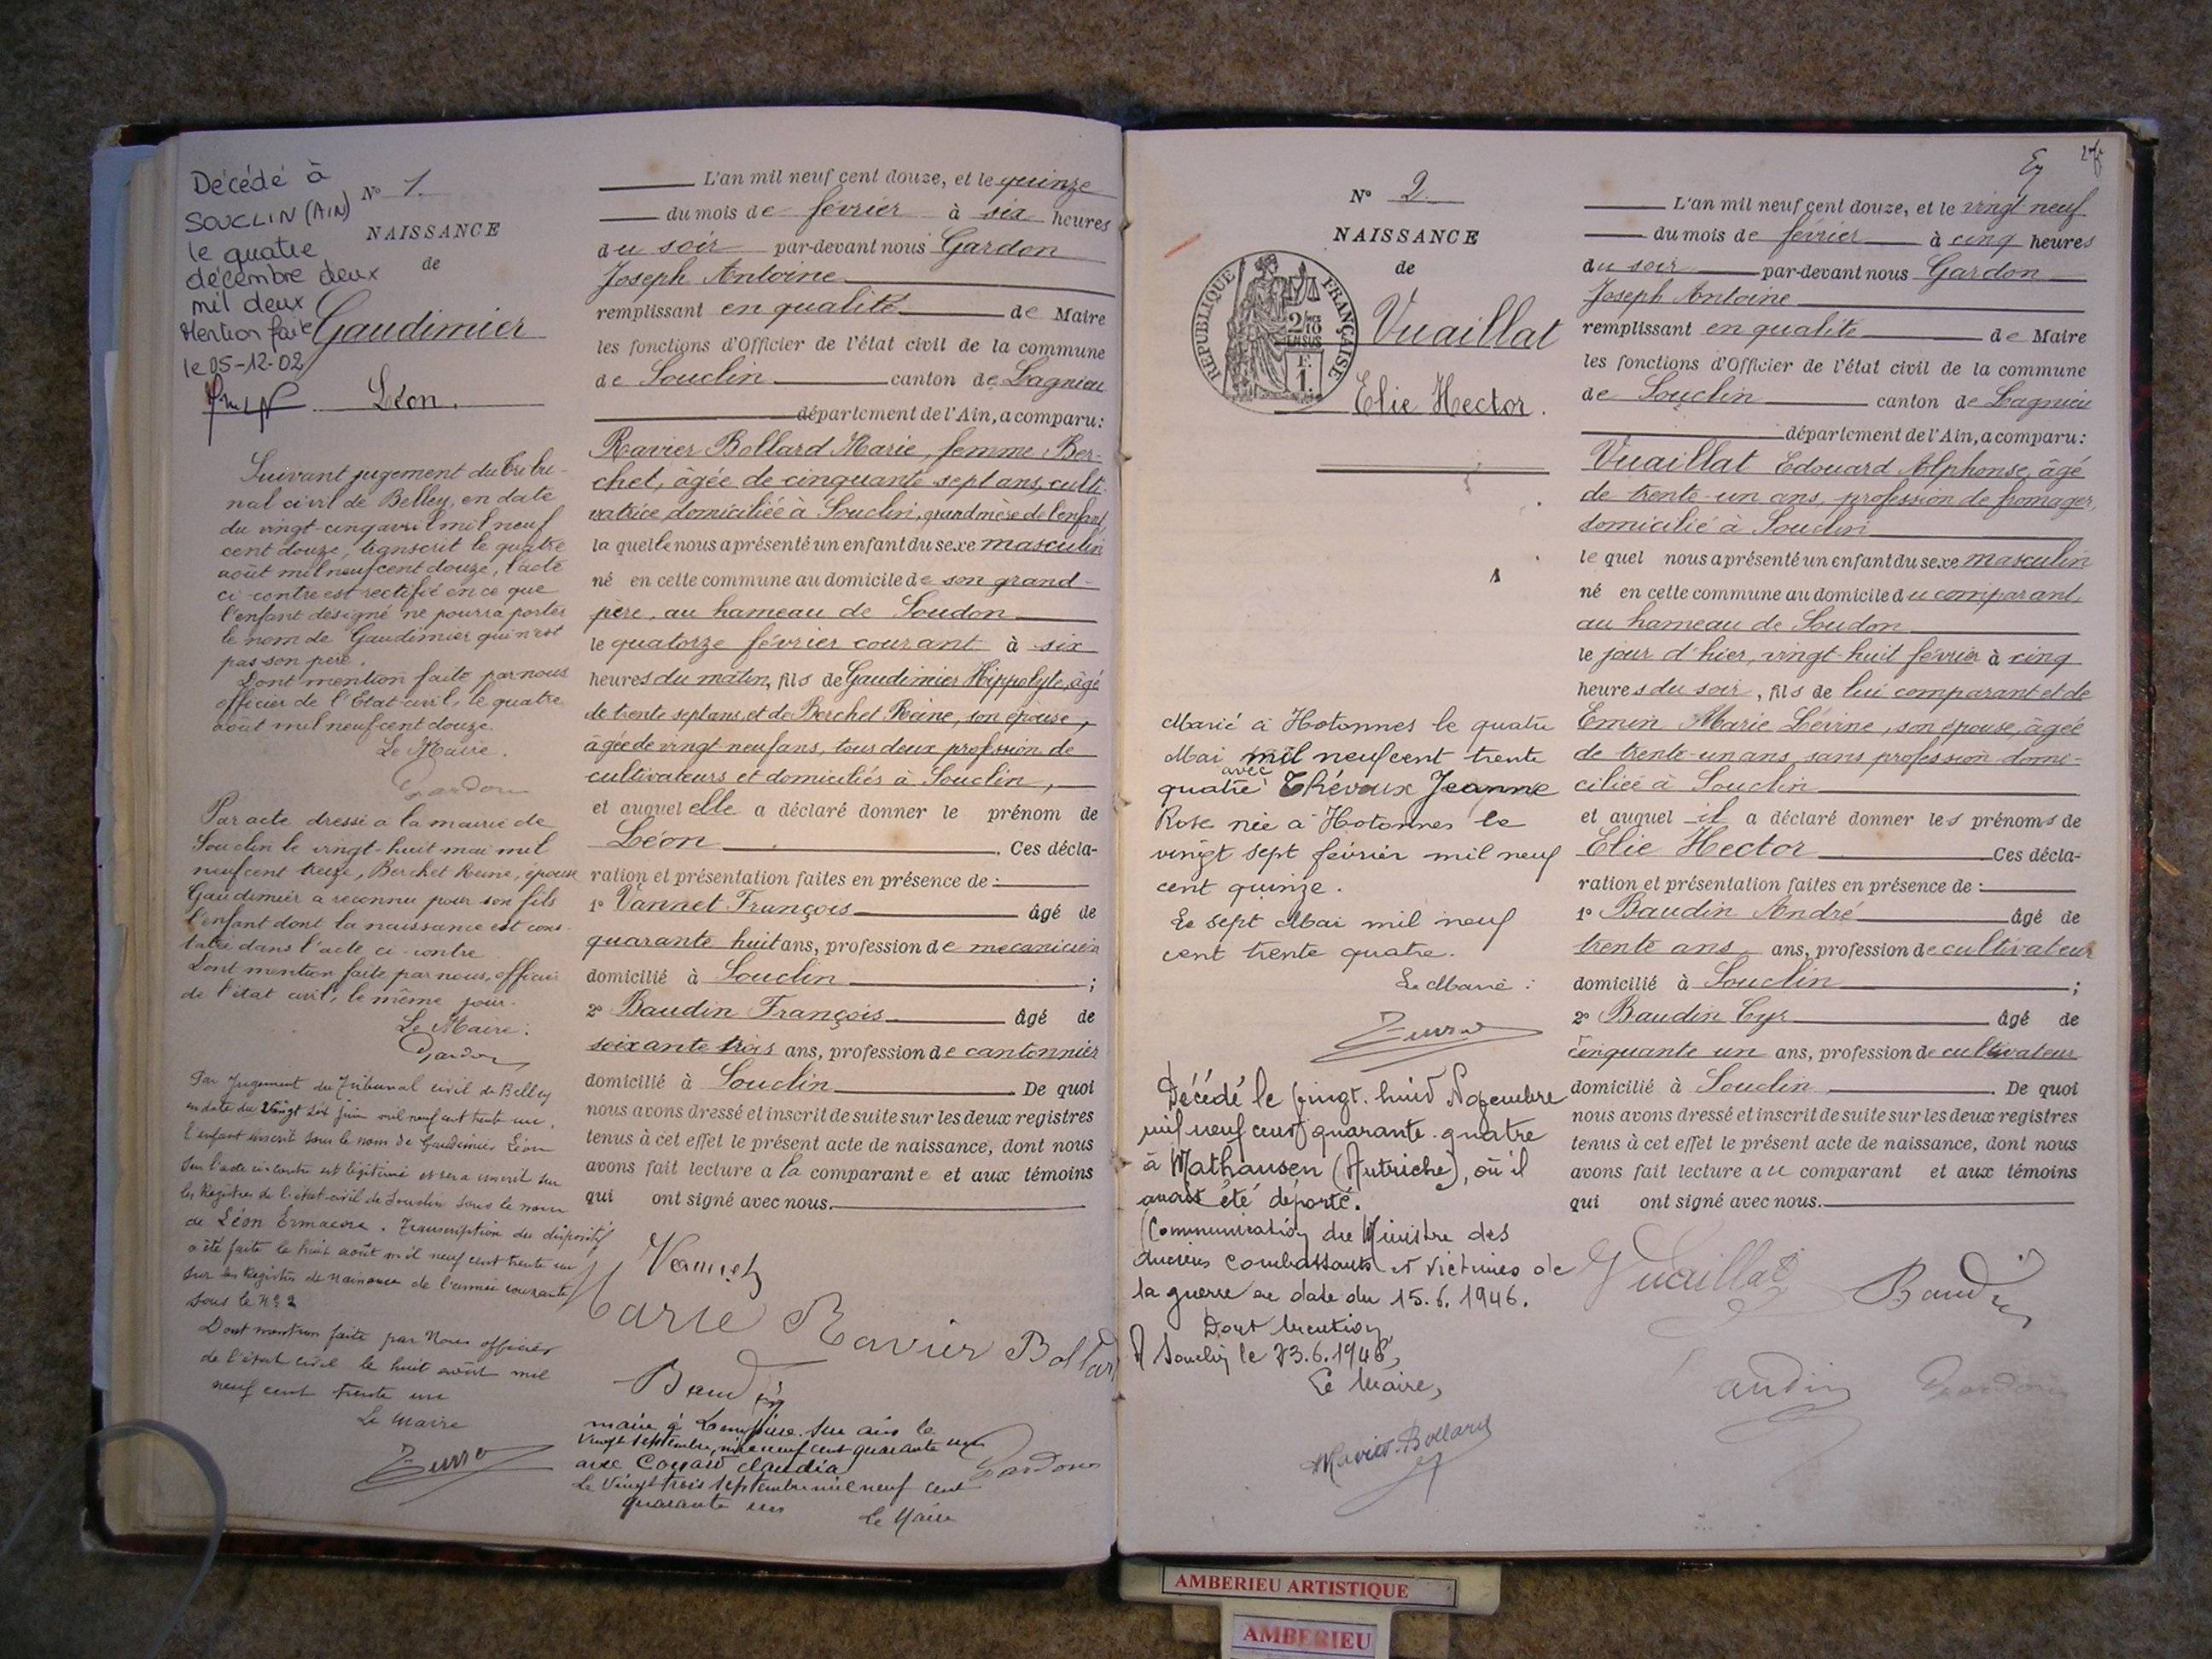 Décédé à
SOUCLIN (AIN)
le quatre
décembre deux
mil deux
Mention faite
le 05-12-02
N° 1.
NAISSANCE
de
Gaudimier
Léon.
Suivant jugement du Tribu-
nal civil de Belley, en date
du vingt-cinq avril mil neuf
cent douze, transcrit le quatre
août mil neuf cent douze, l'acte
ci-contre est rectifié en ce que
l'enfant désigné ne pourra porter
le nom de Gaudimier qui n'est
pas son père.
Dont mention faite par nous
officier de l'Etat civil, le quatre
août mil neuf cent douze.
Le Maire.
Gardon
Par acte dressé à la mairie de
Souclin le vingt-huit mai mil
neuf cent treize, Berchet Reine, épouse
Gaudimier a reconnu pour son fils
l'enfant dont la naissance est cons-
tatée dans l'acte ci-contre
Dont mention faite par nous, officier
de l'état civil, le même jour.
Le Maire.
Gardon
Par Jugement du Tribunal civil de Belley
en date du vingt six juin mil neuf cent trente un,
l'enfant inscrit sous le nom de Gaudimier Léon
sur l'acte ci-contre est légitimé et sera inscrit sur
les Registres de l'état-civil de Souclin sous le nom
de Léon Ermacora. Transcription du dispositif
a été faite le huit août mil neuf cent trente un
sur les Registres de Naissance de l'année courante
sous le N° 2
Dont mention faite par Nous officier
de l'état civil le huit août mil
neuf cent trente un
Le Maire
L'an mil neuf cent douze, et le quinze
du mois de février à six heures
du soir par-devant nous Gardon
Joseph Antoine
remplissant en qualité de Maire
les fonctions d'Officier de l'état civil de la commune
de Souclin canton de Lagnieu
département de l'Ain, a comparu:
Ravier Bollard Marie, femme Ber-
chet, âgée de cinquante sept ans, culti-
vatrice, domiciliée à Souclin, grand'mère de l'enfant,
la quelle nous a présenté un enfant du sexe masculin
né en cette commune au domicile de son grand-
père, au hameau de Soudon
le quatorze février courant à six
heures du matin, fils de Gaudimier Hippolyte, âgé
de trente sept ans, et de Berchet Reine, son épouse,
âgée de vingt neuf ans, tous deux profession de
cultivateurs et domiciliés à Souclin,
et auquel elle a déclaré donner le prénom de
Léon . Ces décla-
ration et présentation faites en présence de :
1° Vannet François âgé de
quarante huit ans, profession de mecanicien
domicilié à Souclin ;
2° Baudin François âgé de
soixante trois ans, profession de cantonnier
domicilié à Souclin . De quoi
nous avons dressé et inscrit de suite sur les deux registres
tenus à cet effet le présent acte de naissance, dont nous
avons fait lecture a la comparante et aux témoins
qui ont signé avec nous.
Vannet
Marie Ravier Bollard
Baudin
Gardon
vingt septembre, mil neuf cent quarante un
avec Claudia
Le Vingt trois septembre mil neuf cent
quarante un
Le Maire
N° 2
NAISSANCE
de
REPUBLIQUE FRANÇAISE
Vuaillat
Elie Hector.
Marié à Hotonnes le quatre
Mai mil neuf cent trente
quatre avec Thévoux Jeanne
Rose née à Hotonnes le
vingt sept février mil neuf
cent quinze.
Le sept Mai mil neuf
cent trente quatre.
Le Maire :
Décédé le vingt-huit Novembre
mil neuf cent quarante-quatre
à Mathausen (Autriche), où il
avait été déporté.
(Communication du Ministre des
Anciens combattants et Victimes de
la guerre en date du 15.6.1946.
Dont mention,
A Souclin le 23.6.1946,
Le Maire,
Ravier-Bollard
L'an mil neuf cent douze, et le vingt neuf
du mois de février à cinq heures
du soir par-devant nous Gardon
Joseph Antoine
remplissant en qualité de Maire
les fonctions d'Officier de l'état civil de la commune
de Souclin canton de Lagnieu
département de l'Ain, a comparu:
Vuaillat Edouard Alphonse, âgé
de trente-un ans, profession de fromager,
domicilié à Souclin
le quel nous a présenté un enfant du sexe masculin
né en cette commune au domicile du comparant,
au hameau de Soudon
le jour d'hier, vingt-huit février à cinq
heures du soir, fils de lui comparant et de
Emin Marie Lévine, son épouse, âgée
de trente-un ans, sans profession domi-
ciliée à Souclin
et auquel il a déclaré donner les prénoms de
Elie Hector Ces décla-
ration et présentation faites en présence de :
1° Baudin André âgé de
trente ans ans, profession de cultivateur
domicilié à Souclin ;
2° Baudin Cyr âgé de
cinquante un ans, profession de cultivateur
domicilié à Souclin . De quoi
nous avons dressé et inscrit de suite sur les deux registres
tenus à cet effet le présent acte de naissance, dont nous
avons fait lecture au comparant et aux témoins
qui ont signé avec nous.
Vuaillat
Baudin
Baudin
Gardon
AMBERIEU ARTISTIQUE
AMBERIEU